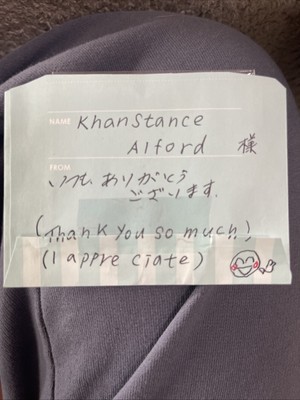 NAME Khanstance
Alford 様
FROM
いつも ありがとう
ございます。
(Thank you so much!)
(I appre ciate)